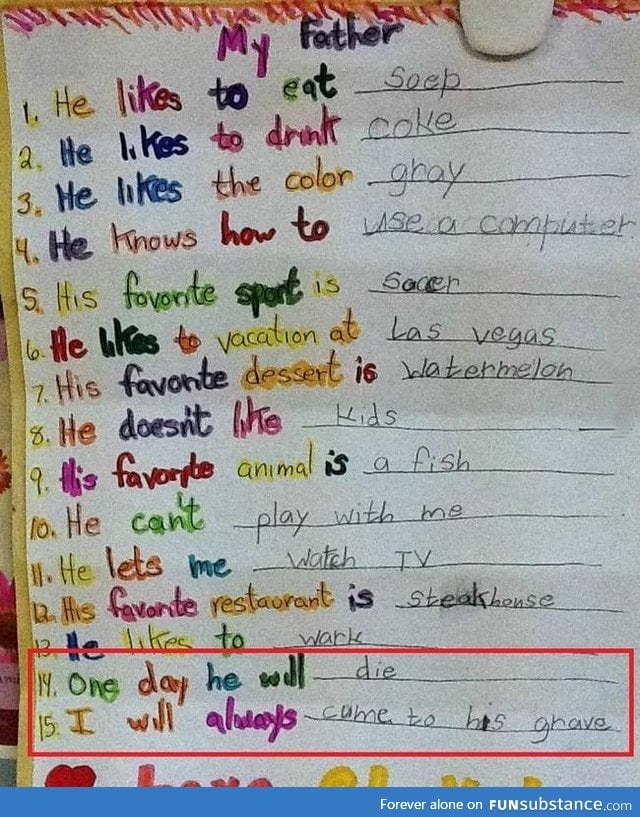 My Father
1. He likes to eat Soep
2. He likes to drink coke
3. He likes the color gray
4. He knows how to use a computer
5. His favorite sport is Soccer
6. He likes to vacation at Las vegas
7. His favorite dessert is Watermelon
8. He doesn't like kids
9. His favorite animal is a fish
10. He can't play with me
11. He lets me watch TV
12. His favorite restaurant is steakhouse
13. He likes to wark
14. One day he will die
15. I will always came to his grave
Forever alone on FUNsubstance.com